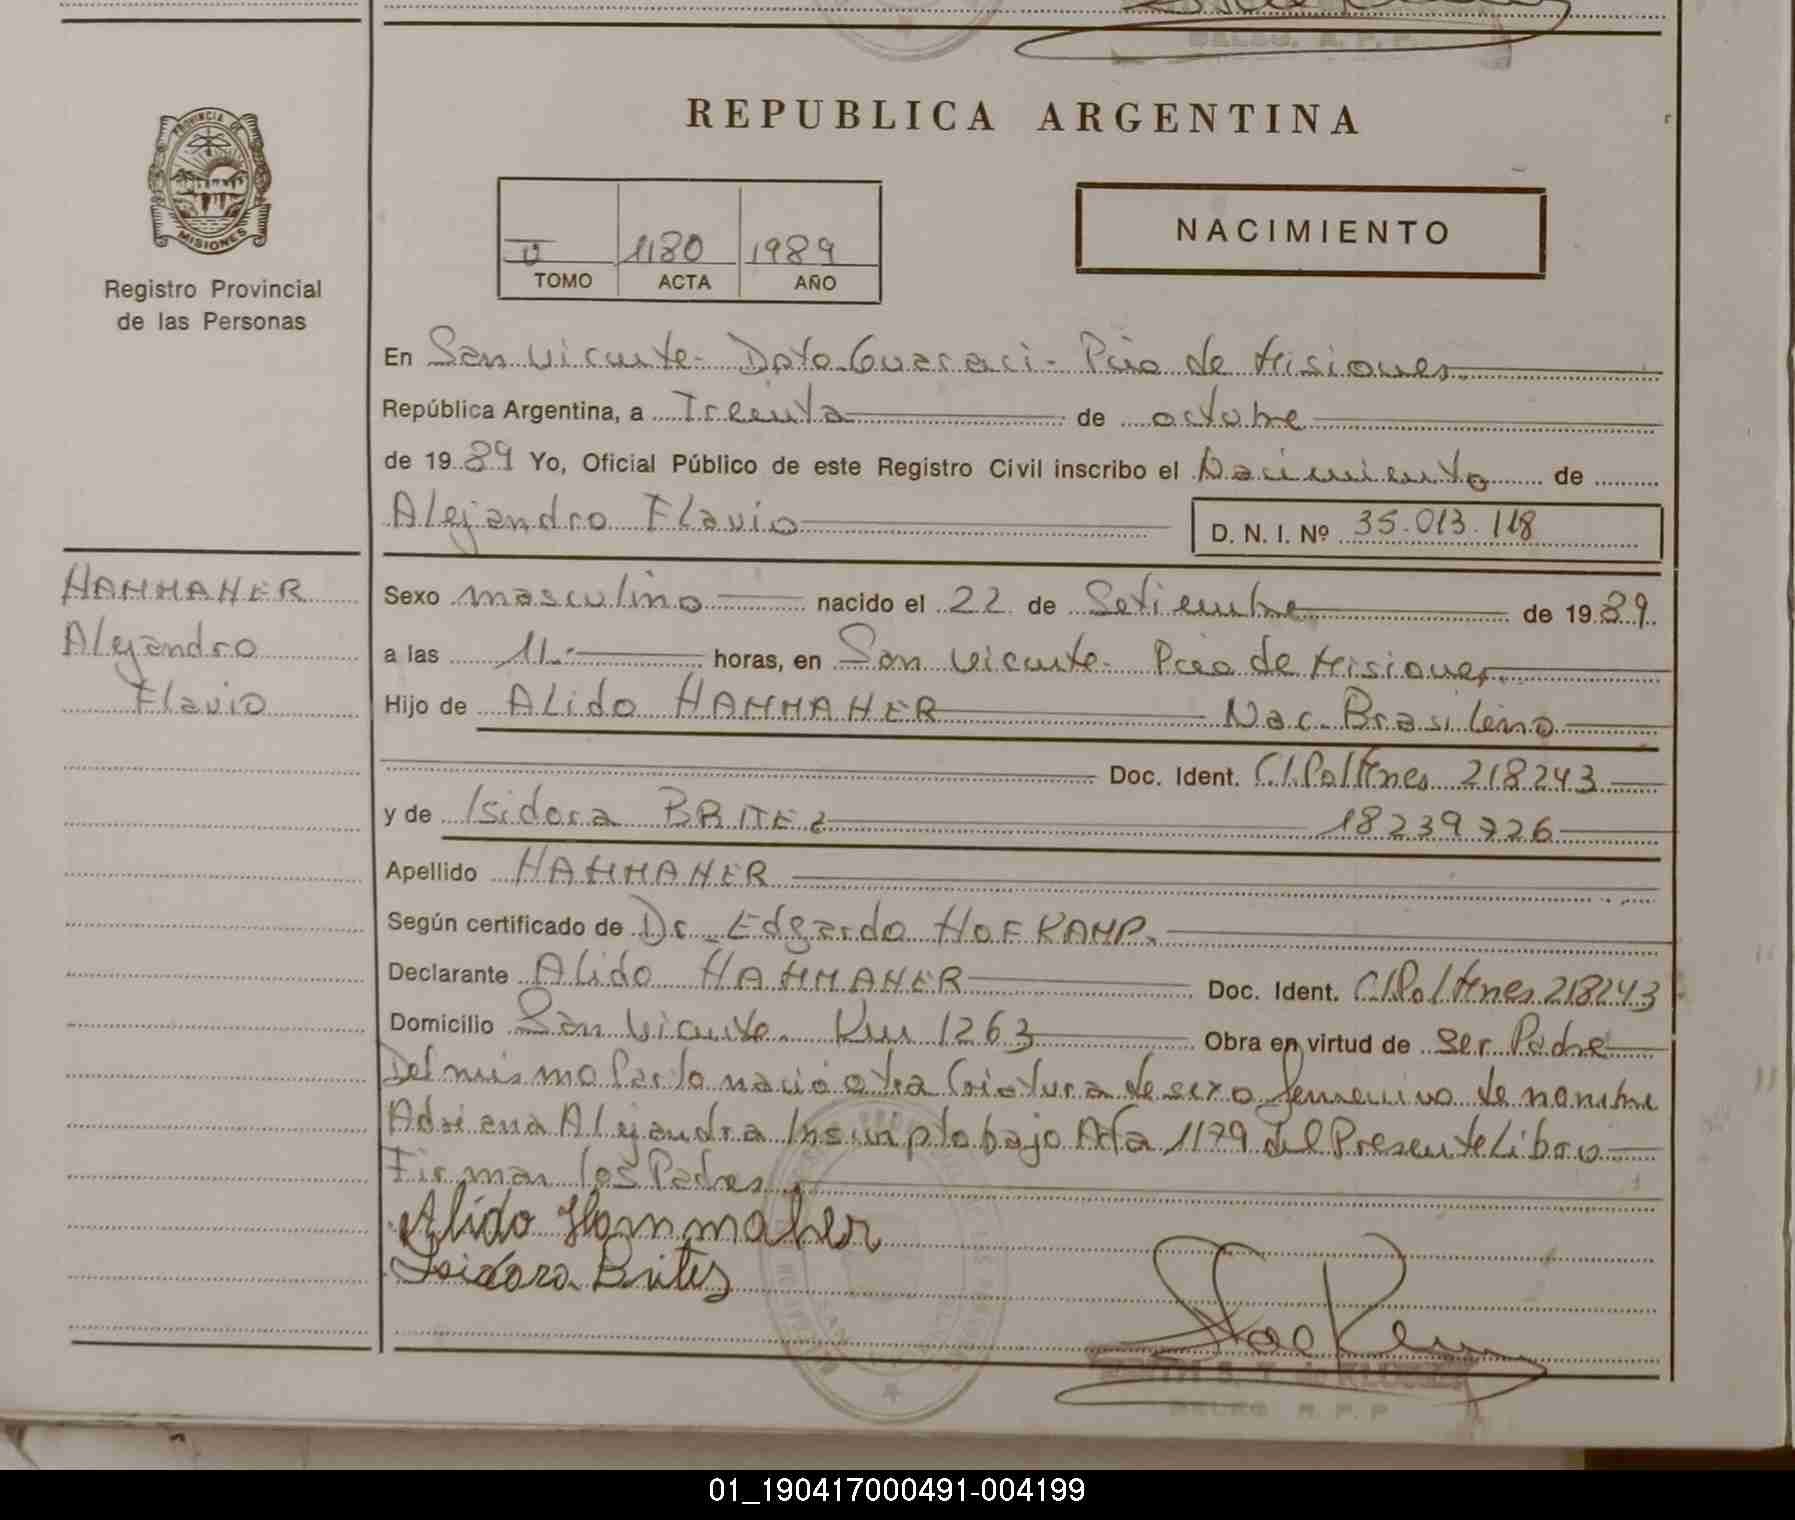 REPUBLICA ARGENTINA
PROVINCIA DE
MISIONES
Registro Provincial
de las Personas
V 1180 1989
TOMO ACTA AÑO
NACIMIENTO
En San Vicente - Dpto Guaraci - Pcia de Misiones
República Argentina, a Treinta de octubre
de 1989 Yo, Oficial Público de este Registro Civil inscribo el Nacimiento de
Alejandro Flavio
D. N. I. Nº 35.013.118
HAMMAHER
Alejandro
Flavio
Sexo masculino nacido el 22 de Setiembre de 1989
a las 11.- horas, en San Vicente - Pcia de Misiones
Hijo de Alido HAMMAHER Nac. Brasileño
Doc. Ident. C.I. Pol Mnes 218243
y de Isidora BRITEZ 18239726
Apellido HAMMAHER
Según certificado de Dr. Edgardo HOFKAMP.
Declarante Alido HAMMAHER Doc. Ident. C.I. Pol Mnes 218243
Domicilio San Vicente. Km 1263 Obra en virtud de Ser Padre
Del mismo Parto nació otra Criatura de sexo femenino de nombre
Adriana Alejandra Inscripto bajo Acta 1179 del Presente Libro
Firman los Padres
Alido Hammaher
Isidora Brites
01_190417000491-004199